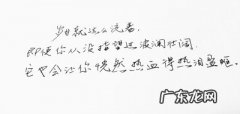 岁月就这么流着，
即便你从没指望过波澜壮阔
它也会让你恍然热血得热泪盈眶
广东龙网